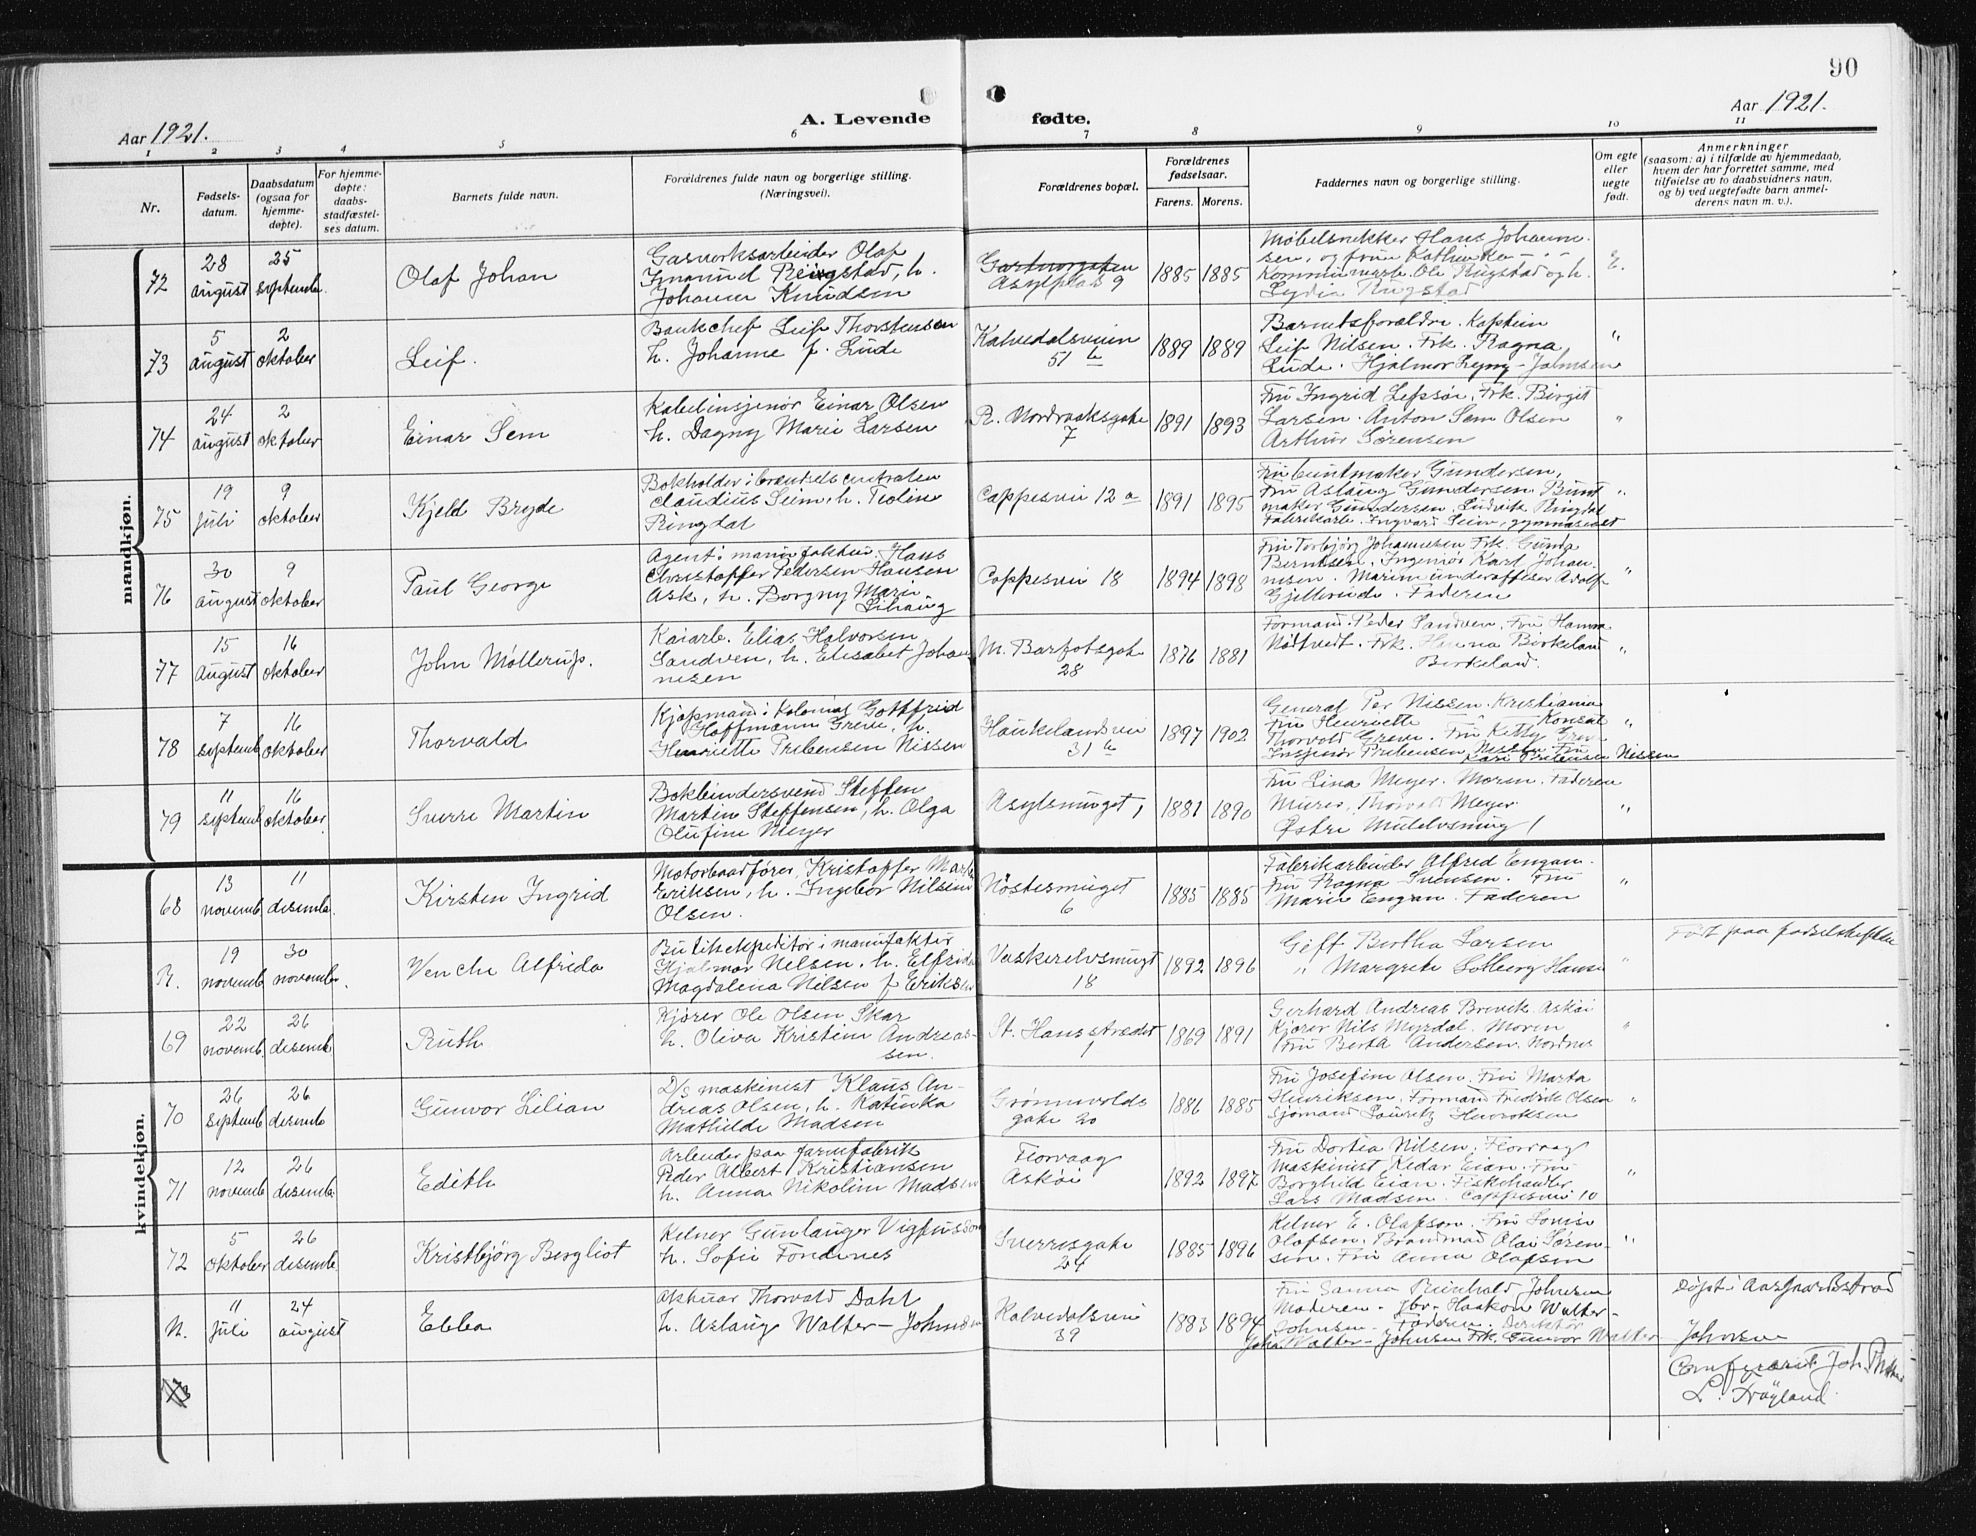 90
Aar 1921.
A. Levende
fødte.
Aar 1921.
1 2 3 4 5 6 7 8 9 10 11
Nr.
Fødsels-
datum.
Daabsdatum
(ogsaa for
hjemme-
døpte).
For hjemme-
døpte:
daabs-
stadfæstel-
ses datum.
Barnets fulde navn.
Forældrenes fulde navn og borgerlige stilling.
(Næringsvei).
Forældrenes bopæl.
Forældrenes
fødselsaar.
Farens. Morens.
Faddernes navn og borgerlige stilling.
Om egte
eller
uegte
født.
Anmerkninger
(saasom: a) i tilfælde av hjemmedaab,
hvem der har forrettet samme, med
tilføielse av to daabsvidners navn,
og b) ved uegtefødte barn anmel-
derens navn m. v.).
mandkjøn.
72
28
august
25
septembe
Olaf Johan
Gasverksarbeider Olaf
Ingmund Ringstad, h.
Johanne Knudsen
Gartnergaten
Asylplas 9
1885 1885
Møbelsnekker Hans Johanne-
sen, og frue Kathinka - " -
Kommunearb. Ole Ringstad og h.
Lydia Ringstad
E.
73
5
august
2
oktober
Leif.
Bankchef Leif Thorstensen
h. Johanne f. Lude
Kalvedalsveien
51 b
1889 1889
Barnetsforældre. Kaptein
Leif Nilsen. Frk. Ragna
Lude. Hjalmar Lyng-Johnsen
"
74
24
august
2
oktober
Einar Sem
Kabelinsjenør Einar Olsen
h. Dagny Marie Larsen
R. Nordraaksgate
7
1891 1893
Fru Ingrid Lepsøe, Frk. Birgit
Larsen. Anton Sem Olsen
Arthur Sørensen
"
75
19
juli
9
oktober
Kjeld Bryde
Bokholder i brændselscentralen
Claudius Seim, h. Teoline
Ringdal
Cappesvei 12 a
1891 1895
Fru buntmaker Gundersen,
Fru Aslaug Gundersen. Bunt
maker Gundersen. Ludvik Ringdal
Fabrikarb. Ingvard Seim, gymnasiast
"
76
30
august
9
oktober
Paul George
Agent i manufaktur Hans
Christoffer Pedersen Hansen
Ask, h. Borgny Marie
Lihaug
Cappesvei 18
1894 1898
Fru Torbjørg Johannesen Frk. Gunda
Berntsen, Ingeniør Karl Johan-
nesen. Marineunderofficer Adolf
Gjellrude. Faderen
"
77
15
August
16
oktober
John Møllerup.
Kaiarb. Elias Halvorsen
Sandven, h. Elisabet Johan
nesen
M. Barfotsgate
28
1876 1881
Formand Peder Sandven, Fru Hanna
Nøttvedt. Frk. Hanna Birkeland
Birkeland.
"
78
7
septemb
16
oktober
Thorvald
Kjøpmand i kolonial Gottfried
Hoffmann Greve, h.
Henriette Prebensen Nissen
Haukelandsvei
31 b
1897 1902
General Per Nissen. Kristiania
Fru Henriette " Konsul
Thorvald Greve. Fru Kitty Greve
Insjenør Prebensen Nissen Fru
Kari Prebensen Nissen
"
79
11
septemb
16
oktober
Sverre Martin
Bokbindersvend Steffen
Martin Steffensen, h. Olga
Olufine Meyer
Asylsmuget 1
1881 1890
Fru Lina Meyer. Moren. Faderen
Murer, Thorvald Meyer
Østre Mulelvsmug 1
"
kvindekjøn.
68
13
novemb
11
desembe.
Kirsten Ingrid
Motorbaadfører Kristoffer Martin
Eriksen, h. Ingebor Nilsine
Olsen.
Nøstesmuget
6
1885 1885
Fabrikarbeider Alfred Engan.
Fru Ragna Svensen. Fru
Marie Engan. Faderen
"
R.
19
novemb
30
novembe.
Venche Alfrida
Butikekspeditør i manufaktur
Hjalmar Nilsen, h. Elfrida
Magdalena Nilsen f Eriksen
Vaskerelvsmuget
18
1892 1896
Gift Bertha Larsen
" Margrete Solberg Hansen
"
Født paa fødselstiften
69
22
novemb.
26
desemb.
Ruth
Kjører Ole Olsen Skar
h. Oliva Kristine Andreas-
sen.
St. Hansstrædet
1
1869 1891
Gerhard Andreas Brevik. Askøi
Kjører Nils Myrdal. Moren
Fru Berta Andersen. Nordnes
"
70
26
septemb
26
desemb
Gunvor Lilian
D/s maskinist Klaus An-
dreas Olsen, h. Katinka
Mathilde Madsen
Grønnevolds
gate 20
1886 1885
Fru Josefine Olsen. Fru Marta
Henriksen, Formand Fredrik Olsen
Sjømand Lauritz Henriksen
"
71
12
novemb.
26
desemb.
Edith
Arbeider paa farvefabrik
Peder Albert Kristiansen
h. Anna Nikoline Madsen
Florvaag
Askøi
1892 1897
Fru Dortea Nilsen, Florvaag
Maskinist Kedar Eian. Fru
Borghild Eian. Fiskehandler
Lars Madsen. Cappesvei 10
"
72
5
oktober
26
desembe
Kristbjörg Bergliot
Kelner Gunlauger Vigfusson
h. Sofie Fondenes
Sverresgate
24
1885 1896
Kelner E. Olafson. Fru Lovise
Olafsen. Brandmad Olai Søren-
sen. Fru Anna Olafsen
"
N.
11
Juli
24
august
Ebba
Aktuar Thorvald Dahl
h. Aslaug Walter-Johnsen
Kalvedalsvei
39
1883 1894
Fru Sanna Reinhold Johnsen
Moderen - gbv. Haakon Walter-
Johnsen - Faderen. Direktør
Johs. Walter-Johnsen Frk. Gunvor Walter
Johnsen
Døpt i Aasgaardstrand
Confererit Joh
L. Frøyland.